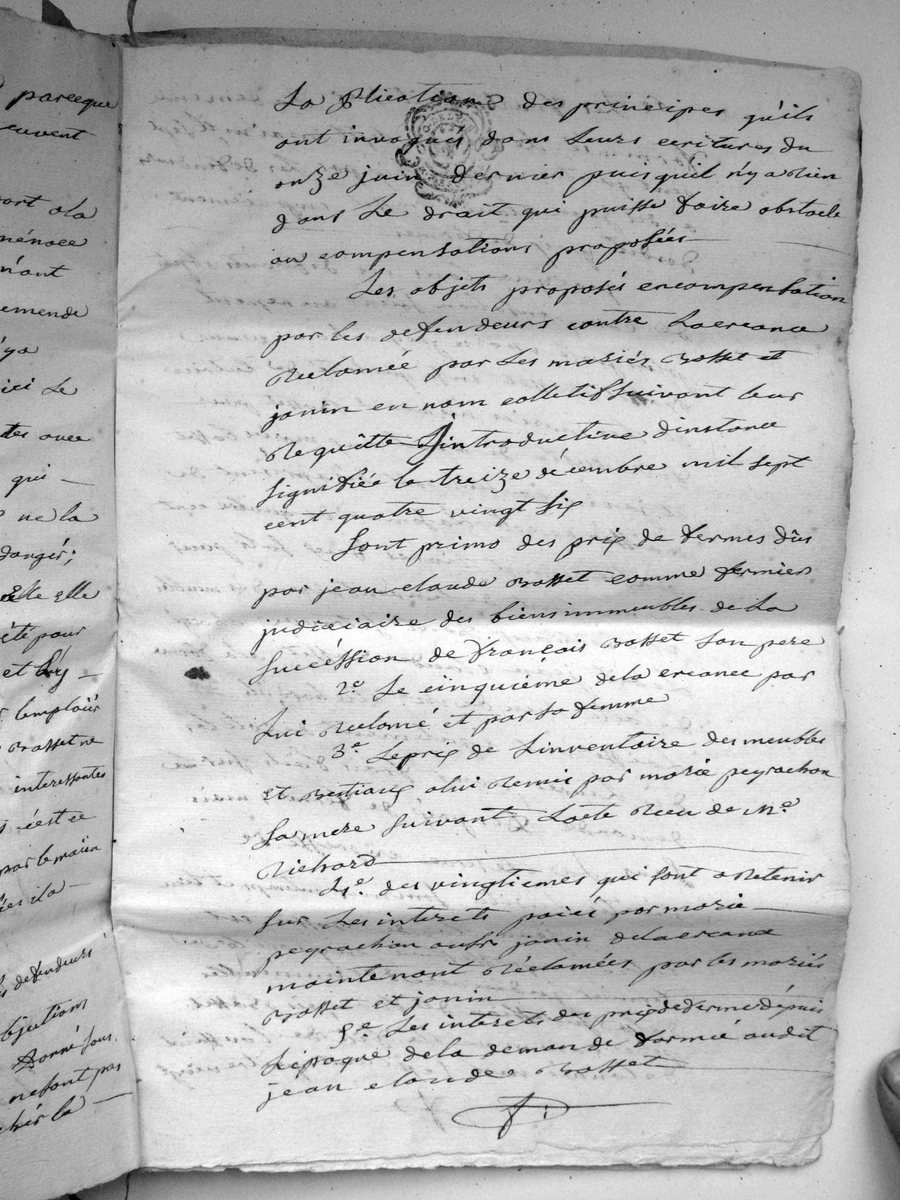 pareeque
euvent
ort a la
ménace
n'ont
emende
ici Le
tes avec
qui -
ne la
danger;
elle
été pour
et Luy -
r lemploiis
Rosset ne
interessantes
c'est ce
par le moïen
defendeurs
bjections
Donné sous
ne font pas
cher la -
La plication des principes qu'ils
ont invoqués dans Leurs ecritures du
onze juin dernier puisquil n'y a Rien
dans Le droit qui puisse faire obstacle
au compensations proposées
Les objets proposés en compensation
par les defendeurs contre La creance
Reclamée par Les mariés Rosset et
janin en nom colletif suivant leur
Requitte introductive dinstance
signifiée le treize décembre mil sept
cent quatre vingt six
Sont primo des prix de fermes dûs
par jean claude Rosset comme fermier
judiciaire des biens immeubles de La
succéssion de françois Rosset son pere
2.e Le cinquiéme de la creance par
Lui Reclamé et par sa femme
3.e Le prix de Linventaire des meubles
et Bestiaux a lui Remis par marie peyrachon
sa mere suivant Lacte Reçu de M.e
Richard
4.e des vingtiemes qui sont a Retenir
sur Les interets paiés par marie
peyrachon au sr janin de la creance
maintenant Réclamées par les mariés
Rosset et janin
5.e Les interets des prix de ferme dépuis
Lépoque de la demande formée audit
jean claude Rosset